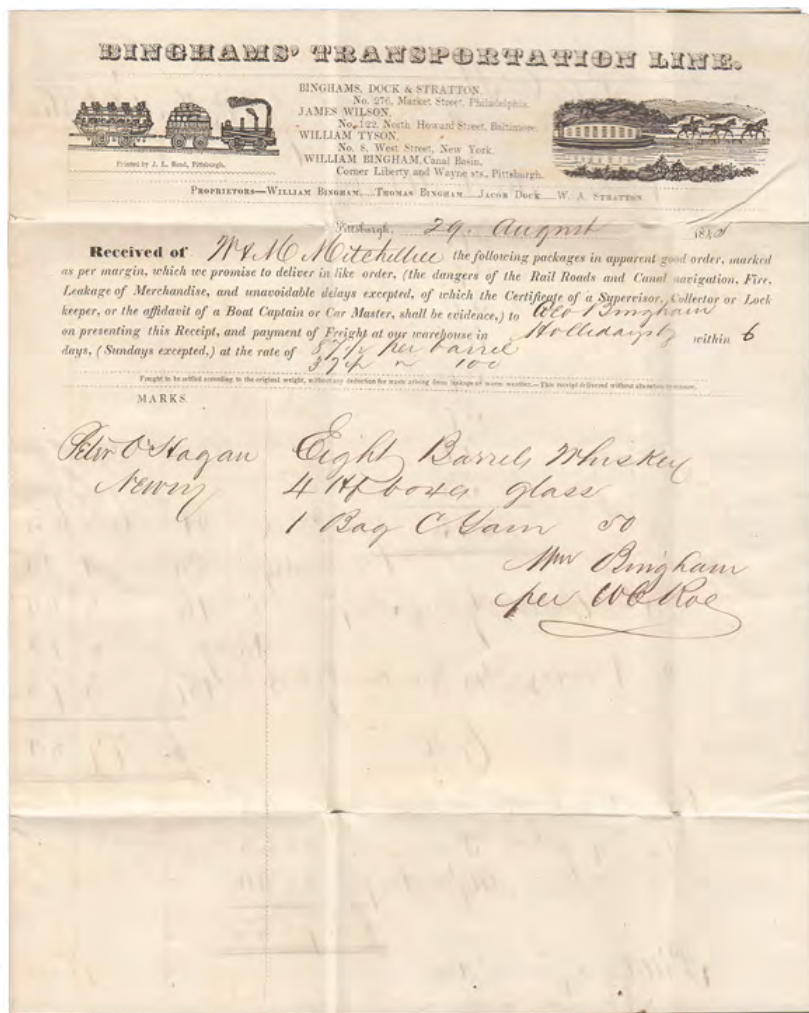 BINGHAMS' TRANSPORTATION LINE.
BINGHAMS, DOCK & STRATTON.
No. 276, Market Street, Philadelphia.
JAMES WILSON,
No. 122, North Howard Street, Baltimore.
WILLIAM TYSON,
No. 8, West Street, New York.
WILLIAM BINGHAM, Canal Basin,
Corner Liberty and Wayne sts., Pittsburgh.
Printed by J. L. Read, Pittsburgh.
PROPRIETORS—WILLIAM BINGHAM....THOMAS BINGHAM....JACOB DOCK....W. A. STRATTON.
Pittsburgh, 29. August 184
Received of W & M Mitchelltree the following packages in apparent good order, marked
as per margin, which we promise to deliver in like order, (the dangers of the Rail Roads and Canal navigation, Fire,
Leakage of Merchandise, and unavoidable delays excepted, of which the Certificate of a Supervisor, Collector or Lock
keeper, or the affidavit of a Boat Captain or Car Master, shall be evidence,) to Geo Bingham
on presenting this Receipt, and payment of Freight at our warehouse in Hollidaysbg within 6
days, (Sundays excepted,) at the rate of 87½ per barrel
37½ 100
Freight to be settled according to the original weight, without any deduction for waste arising from leakage or warm weather.—This receipt delivered without alteration or erasure.
MARKS.
Peter O'Hagan Eight Barrels Whiskey
Newry 4 Hf boxes glass
1 Bag C. Yarn 50
Wm Bingham
per W C Roe